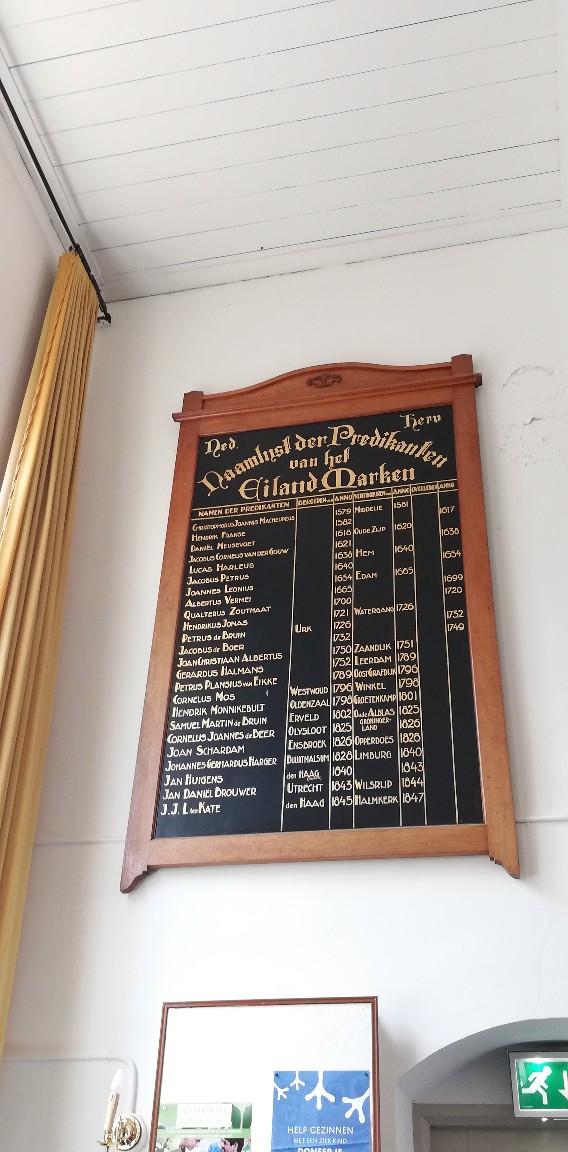 Ned. Herv
Naamlijst der Predikanten
van het
Eiland Marken
NAMEN DER PREDIKANTEN BEROEPEN ANNO VERTROKKEN ANNO OVERLEDEN ANNO
CHRISTOPHORUS JOANNIS MACHEUPEUS 1579 MIDDELIE 1581
HENDRIK FRANSE 1582 1617
DANIËL MEUSEVOET 1618 OUDE ZIJP 1620
JACOBUS CORNELIS VAN DER GOUW 1621 1638
LUCAS HARLEUS 1638 HEM 1640
JACOBUS PETRUS 1640 1654
JOANNES LEONIUS 1654 EDAM 1665
ALBERTUS VERMEI 1665 1699
QUALTERUS ZOUTMAAT 1700 1720
HENDRIKUS JONAS 1721 WATERGANG 1726
PETRUS DE BRUIN URK 1726 1732
JACOBUS DE BOER 1732 1749
JOAN CHRISTIAAN ALBERTUS 1750 ZAANDIJK 1751
GERARDUS HALMANS 1752 LEERDAM 1789
PETRUS PLANSIUS VAN EIKKE 1789 OOSTGRAFDIJK 1796
CORNELIUS MOS WESTWOUD 1796 WINKEL 1798
HENDRIK MONNIKEBULT OLDENZAAL 1798 GROETENKAMP 1801
SAMUEL MARTIN DE BRUIN ERVELD 1802 OUD ALBLAS 1825
CORNELIUS JOANNES DE BEER OLYSLOOT 1825 GRONINGERLAND 1826
JOAN SCHARDAM ENSBROEK 1826 OPPERDOES 1828
JOHANNES GERHARDUS HARGER 1828 LIMBURG 1840
JAN HUIGENS DEN HAAG 1840 1843
JAN DANIËL BROUWER UTRECHT 1843 WILSRIJP 1844
J.J.L TEN KATE DEN HAAG 1845 HALMKERK 1847
HELP GEZINNEN
MET EEN ZIEK KIND
DONEER JE